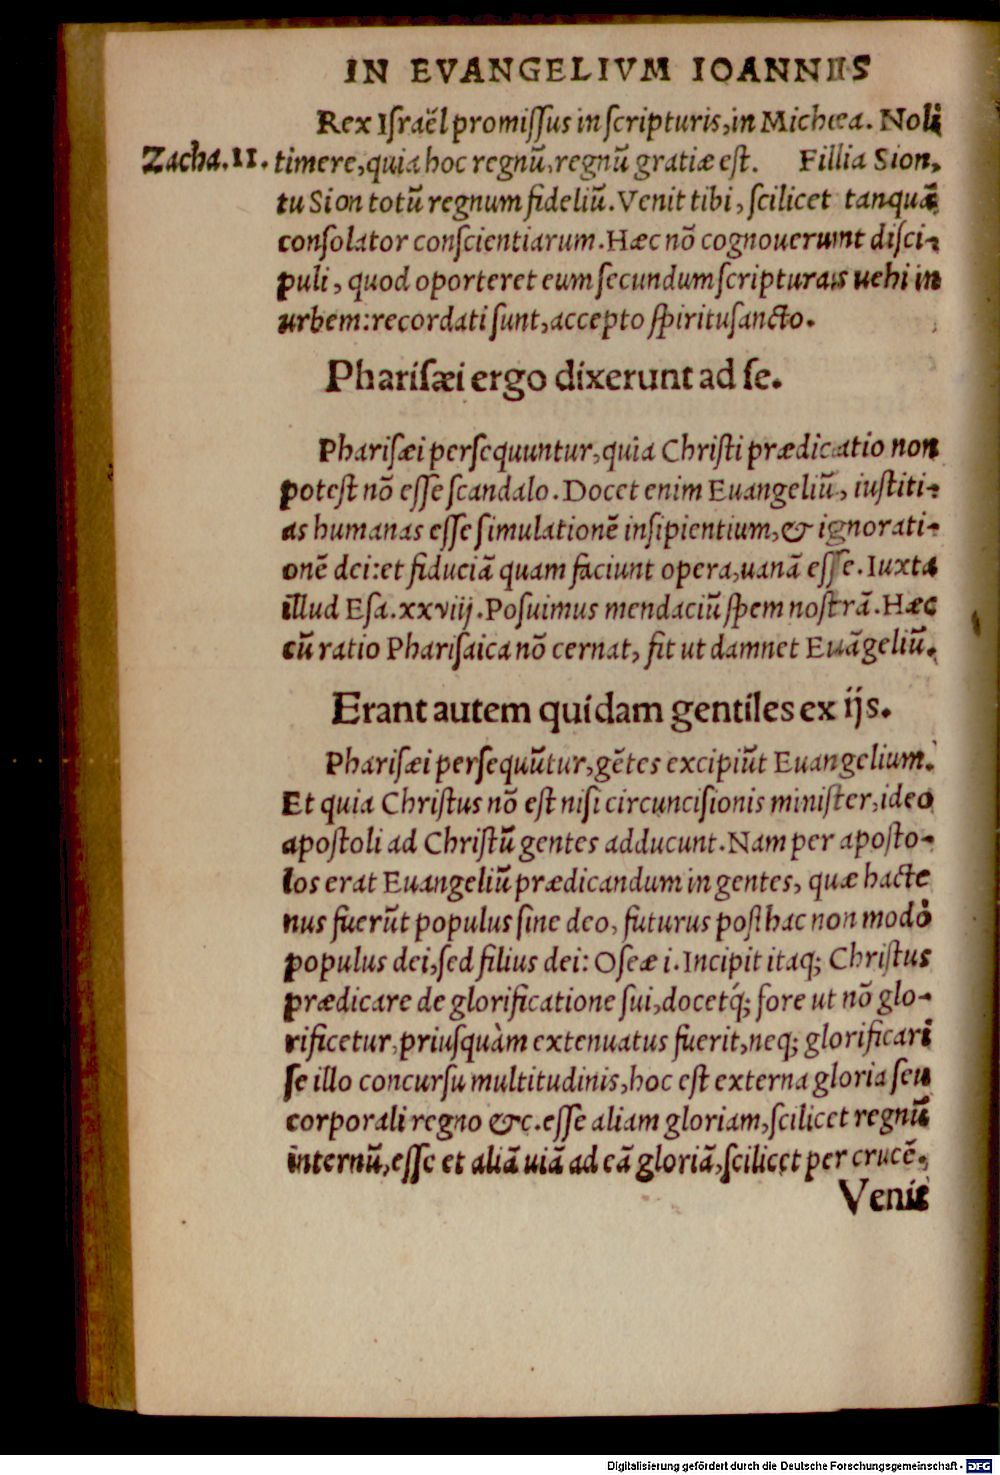 IN EVANGELIVM IOANNIS
Rex Iſraël promiſſus in ſcripturis, in Michæa. Noli
Zacha. 11. timere, quia hoc regnũ, regnũ gratiæ eſt. Fillia Sion,
tu Sion totũ regnum fideliũ. Venit tibi, ſcilicet tanquã
conſolator conſcientiarum. Hæc nõ cognouerunt diſci-
puli, quod oporteret eum ſecundum ſcripturas uehi in
urbem: recordati ſunt, accepto ſpiritu ſancto.
Phariſæi ergo dixerunt ad ſe.
Phariſæi perſequuntur, quia Chriſti prædicatio non
poteſt nõ eſſe ſcandalo. Docet enim Euangeliũ, iuſtiti-
as humanas eſſe ſimulationẽ inſipientium, & ignorati-
onẽ dei: et fiduciã quam faciunt opera, uanã eſſe. Iuxta
illud Eſa. xxviij. Poſuimus mendaciũ ſpem noſtrã. Hæc
cũ ratio Phariſaica nõ cernat, fit ut damnet Euãgeliũ.
Erant autem quidam gentiles ex ijs.
Phariſæi perſequũtur, gẽtes excipiũt Euangelium.
Et quia Chriſtus nõ eſt niſi circunciſionis miniſter, ideo
apoſtoli ad Chriſtũ gentes adducunt. Nam per apoſto-
los erat Euangeliũ prædicandum in gentes, quæ hacte
nus fuerũt populus ſine deo, futurus poſthac non modò
populus dei, ſed filius dei: Oſeæ i. Incipit itaq; Chriſtus
prædicare de glorificatione ſui, docetq́; fore ut nõ glo-
rificetur, priuſquàm extenuatus fuerit, neq; glorificari
ſe illo concurſu multitudinis, hoc eſt externa gloria ſeu
corporali regno &c. eſſe aliam gloriam, ſcilicet regnũ
internũ, eſſe et aliã uiã ad eã gloriã, ſcilicet per crucẽ.
Venit
Digitalisierung gefördert durch die Deutsche Forschungsgemeinschaft - DFG